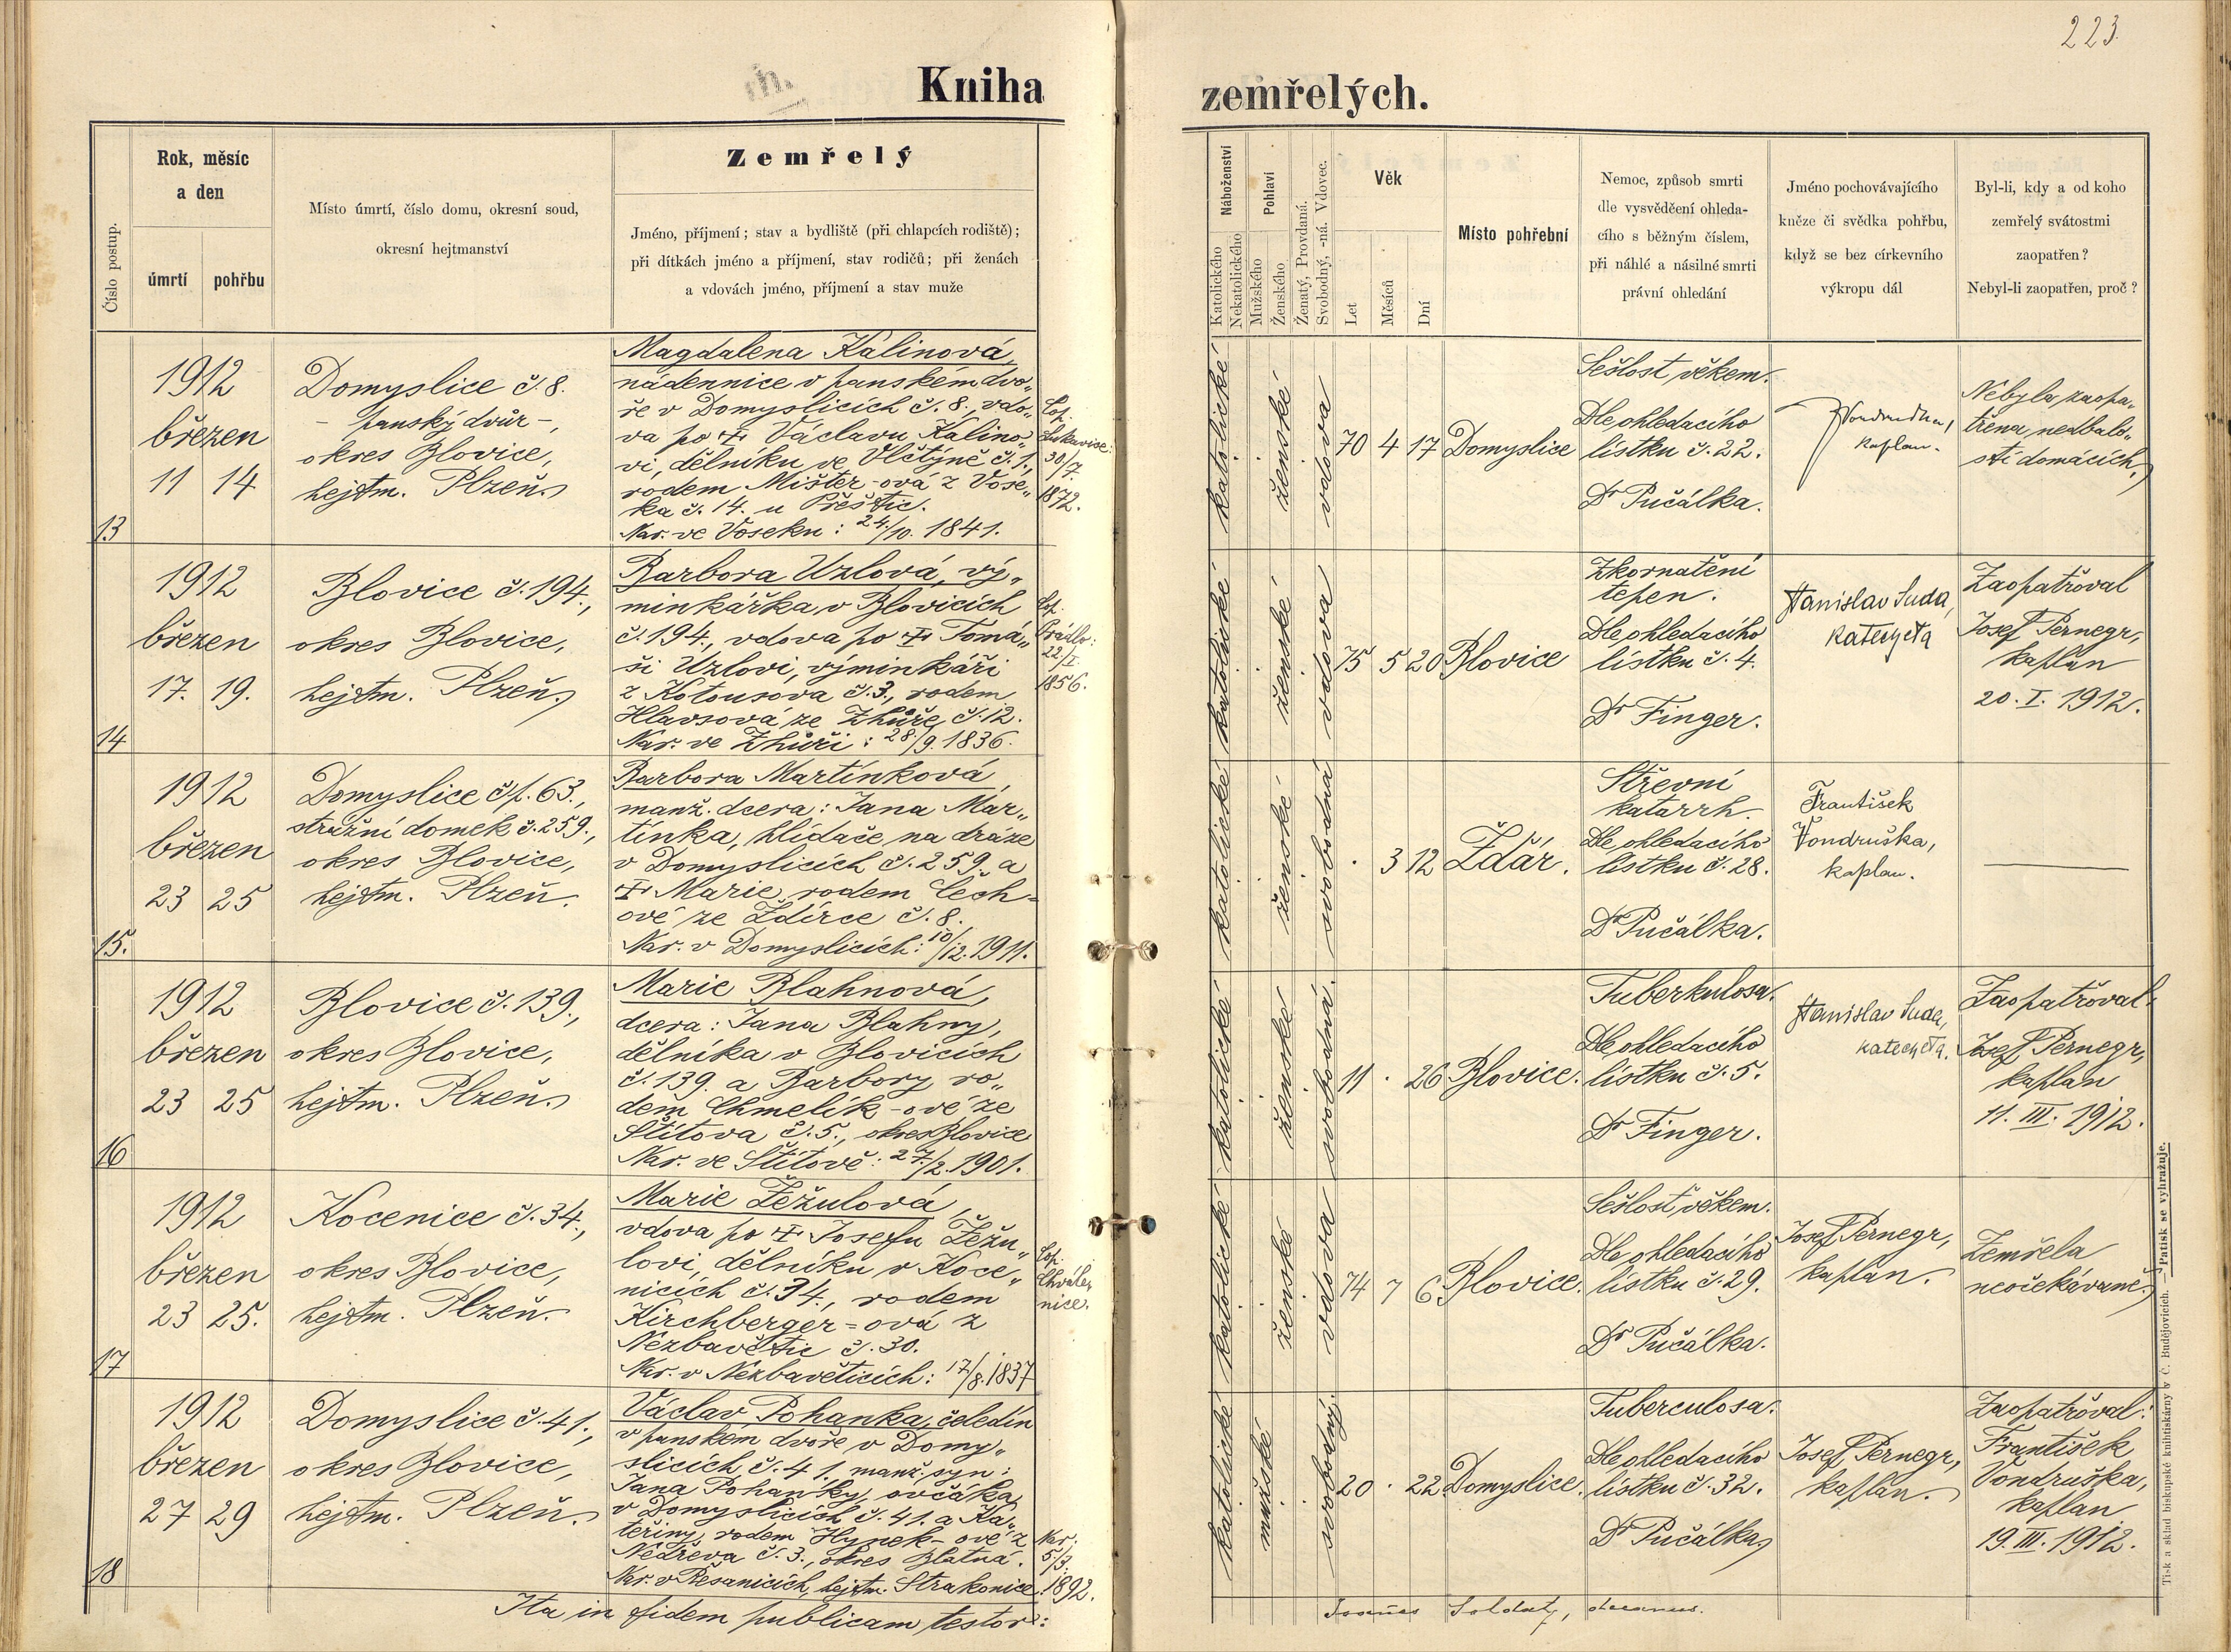 223.
Kniha zemřelých.
Číslo postup.
Rok, měsíc
a den
úmrtí
pohřbu
Místo úmrtí, číslo domu, okresní soud,
okresní hejtmanství
Zemřelý
Jméno, příjmení; stav a bydliště (při chlapcích rodiště);
při dítkách jméno a příjmení, stav rodičů; při ženách
a vdovách jméno, příjmení a stav muže
Náboženství
Katolického
Nekatolického
Pohlaví
Mužského
Ženského
Ženatý, Provdaná.
Svobodný, -ná. Vdovec.
Věk
Let
Měsíců
Dní
Místo pohřební
Nemoc, způsob smrti
dle vysvědčení ohleda-
cího s běžným číslem,
při náhlé a násilné smrti
právní ohledání
Jméno pochovávajícího
kněze či svědka pohřbu,
když se bez církevního
výkropu dál
Byl-li, kdy a od koho
zemřelý svátostmi
zaopatřen?
Nebyl-li zaopatřen, proč?
13
1912
březen
11 14
Domyslice č. 8.
- panský dvůr -,
okres Blovice,
hejtm. Plzeň.
Magdalena Kalinová,
nádennice v panském dvo„
ře v Domyslicích č. 8., vdo„
va po † Václavu Kalino„
vi, dělníku ve Vlčtýně č. 1.,
rodem Mišter-ová z Vose„
ka č. 14. u Přeštic.
Nar. ve Voseku: 24./10. 1841.
Cop.
30/7.
1872.
katolické
ženské
vdova
70 4 17
Domyslice
Sešlost věkem.
Dle ohledacího
lístku č. 22.
Dr Pučálka.
Vondruška,
kaplan.
Nebyla zaopa„
třena nedbalo„
stí domácích.
14
1912
březen
17. 19.
Blovice č. 194.,
okres Blovice,
hejtm. Plzeň.
Barbora Uzlová, vý„
minkářka v Blovicích
č. 194., vdova po † Tomá„
ši Uzlovi, výminkáři
z Kotousova č. 3., rodem
Hlavsová ze Zhůře č. 12.
Nar. ve Zhůři: 28./9. 1836.
Cop.
Prádlo:
22./I.
1856.
katolické
ženské
vdova
75 5 20
Blovice
Zkornatění
tepen.
Dle ohledacího
lístku č. 4.
Dr Finger.
Stanislav Suda,
katecheta
Zaopatřoval
Josef Pernegr,
kaplan
20. I. 1912.
15.
1912
březen
23 25
Domyslice čp. 63.,
strážní domek č. 259.,
okres Blovice,
hejtm. Plzeň.
Barbora Martínková,
manž. dcera: Jana Mar„
tínka, hlídače na dráze
v Domyslicích č. 259. a
† Marie, rodem Čech-
ové ze Ždírce č. 8.
Nar. v Domyslicích: 10/12. 1911.
katolické
ženské
svobodná
. 3 12
Ždár.
Střevní
katarrh.
Dle ohledacího
lístku č. 28.
Dr Pučálka.
František
Vondruška,
kaplan.
16
1912
březen
23 25
Blovice č. 139.,
okres Blovice,
hejtm. Plzeň.
Marie Blahnová,
dcera: Jana Blahny,
dělníka v Blovicích
č. 139. a Barbory, ro„
dem Chmelík-ové ze
Štítova č. 5., okres Blovice
Nar. ve Štítově: 27./2. 1901.
katolické
ženské
svobodná
11 . 26
Blovice.
Tuberkulosa.
Dle ohledacího
lístku č. 5.
Dr Finger.
Stanislav Suda,
katecheta.
Zaopatřoval
Josef Pernegr,
kaplan
11. III. 1912.
17
1912
březen
23 25.
Kocenice č. 34.,
okres Blovice,
hejtm. Plzeň.
Marie Žežulová,
vdova po † Josefu Žežu„
lovi, dělníku v Koce„
nicích č. 34., rodem
Kirchberger=ová z
Nezbavětic č. 30.
Nar. v Nezbavěticích: 17/8. 1837
Cop.
Chvále„
nice.
katolické
ženské
vdova
74 7 6
Blovice.
Sešlost věkem.
Dle ohledacího
lístku č. 29.
Dr Pučálka.
Josef Pernegr,
kaplan.
Zemřela
neočekávaně.
18
1912
březen
27 29
Domyslice č. 41.,
okres Blovice,
hejtm. Plzeň.
Václav Pohanka, čeledín
v panském dvoře v Domy„
slicích č. 41. manž. syn:
Jana Pohanky, ovčáka
v Domyslicích č. 41. a Ka„
teřiny, rodem Hynek-ové z
Nedřeva č. 3., okres Blatná.
Nar. v Řesanicích, hejtm. Strakonice.
Nar.
5/3.
1892.
katolické
mužské
svobodný.
20 . 22
Domyslice.
Tuberculosa.
Dle ohledacího
lístku č. 32.
Dr Pučálka,
Josef Pernegr,
kaplan.
Zaopatřoval:
František
Vondruška,
kaplan
19. III. 1912.
Ita in fidem publicam testor:
Joannes Soldat, decanus.
Tisk a sklad biskupské knihtiskárny v Č. Budějovicích. — Patisk se vyhražuje.